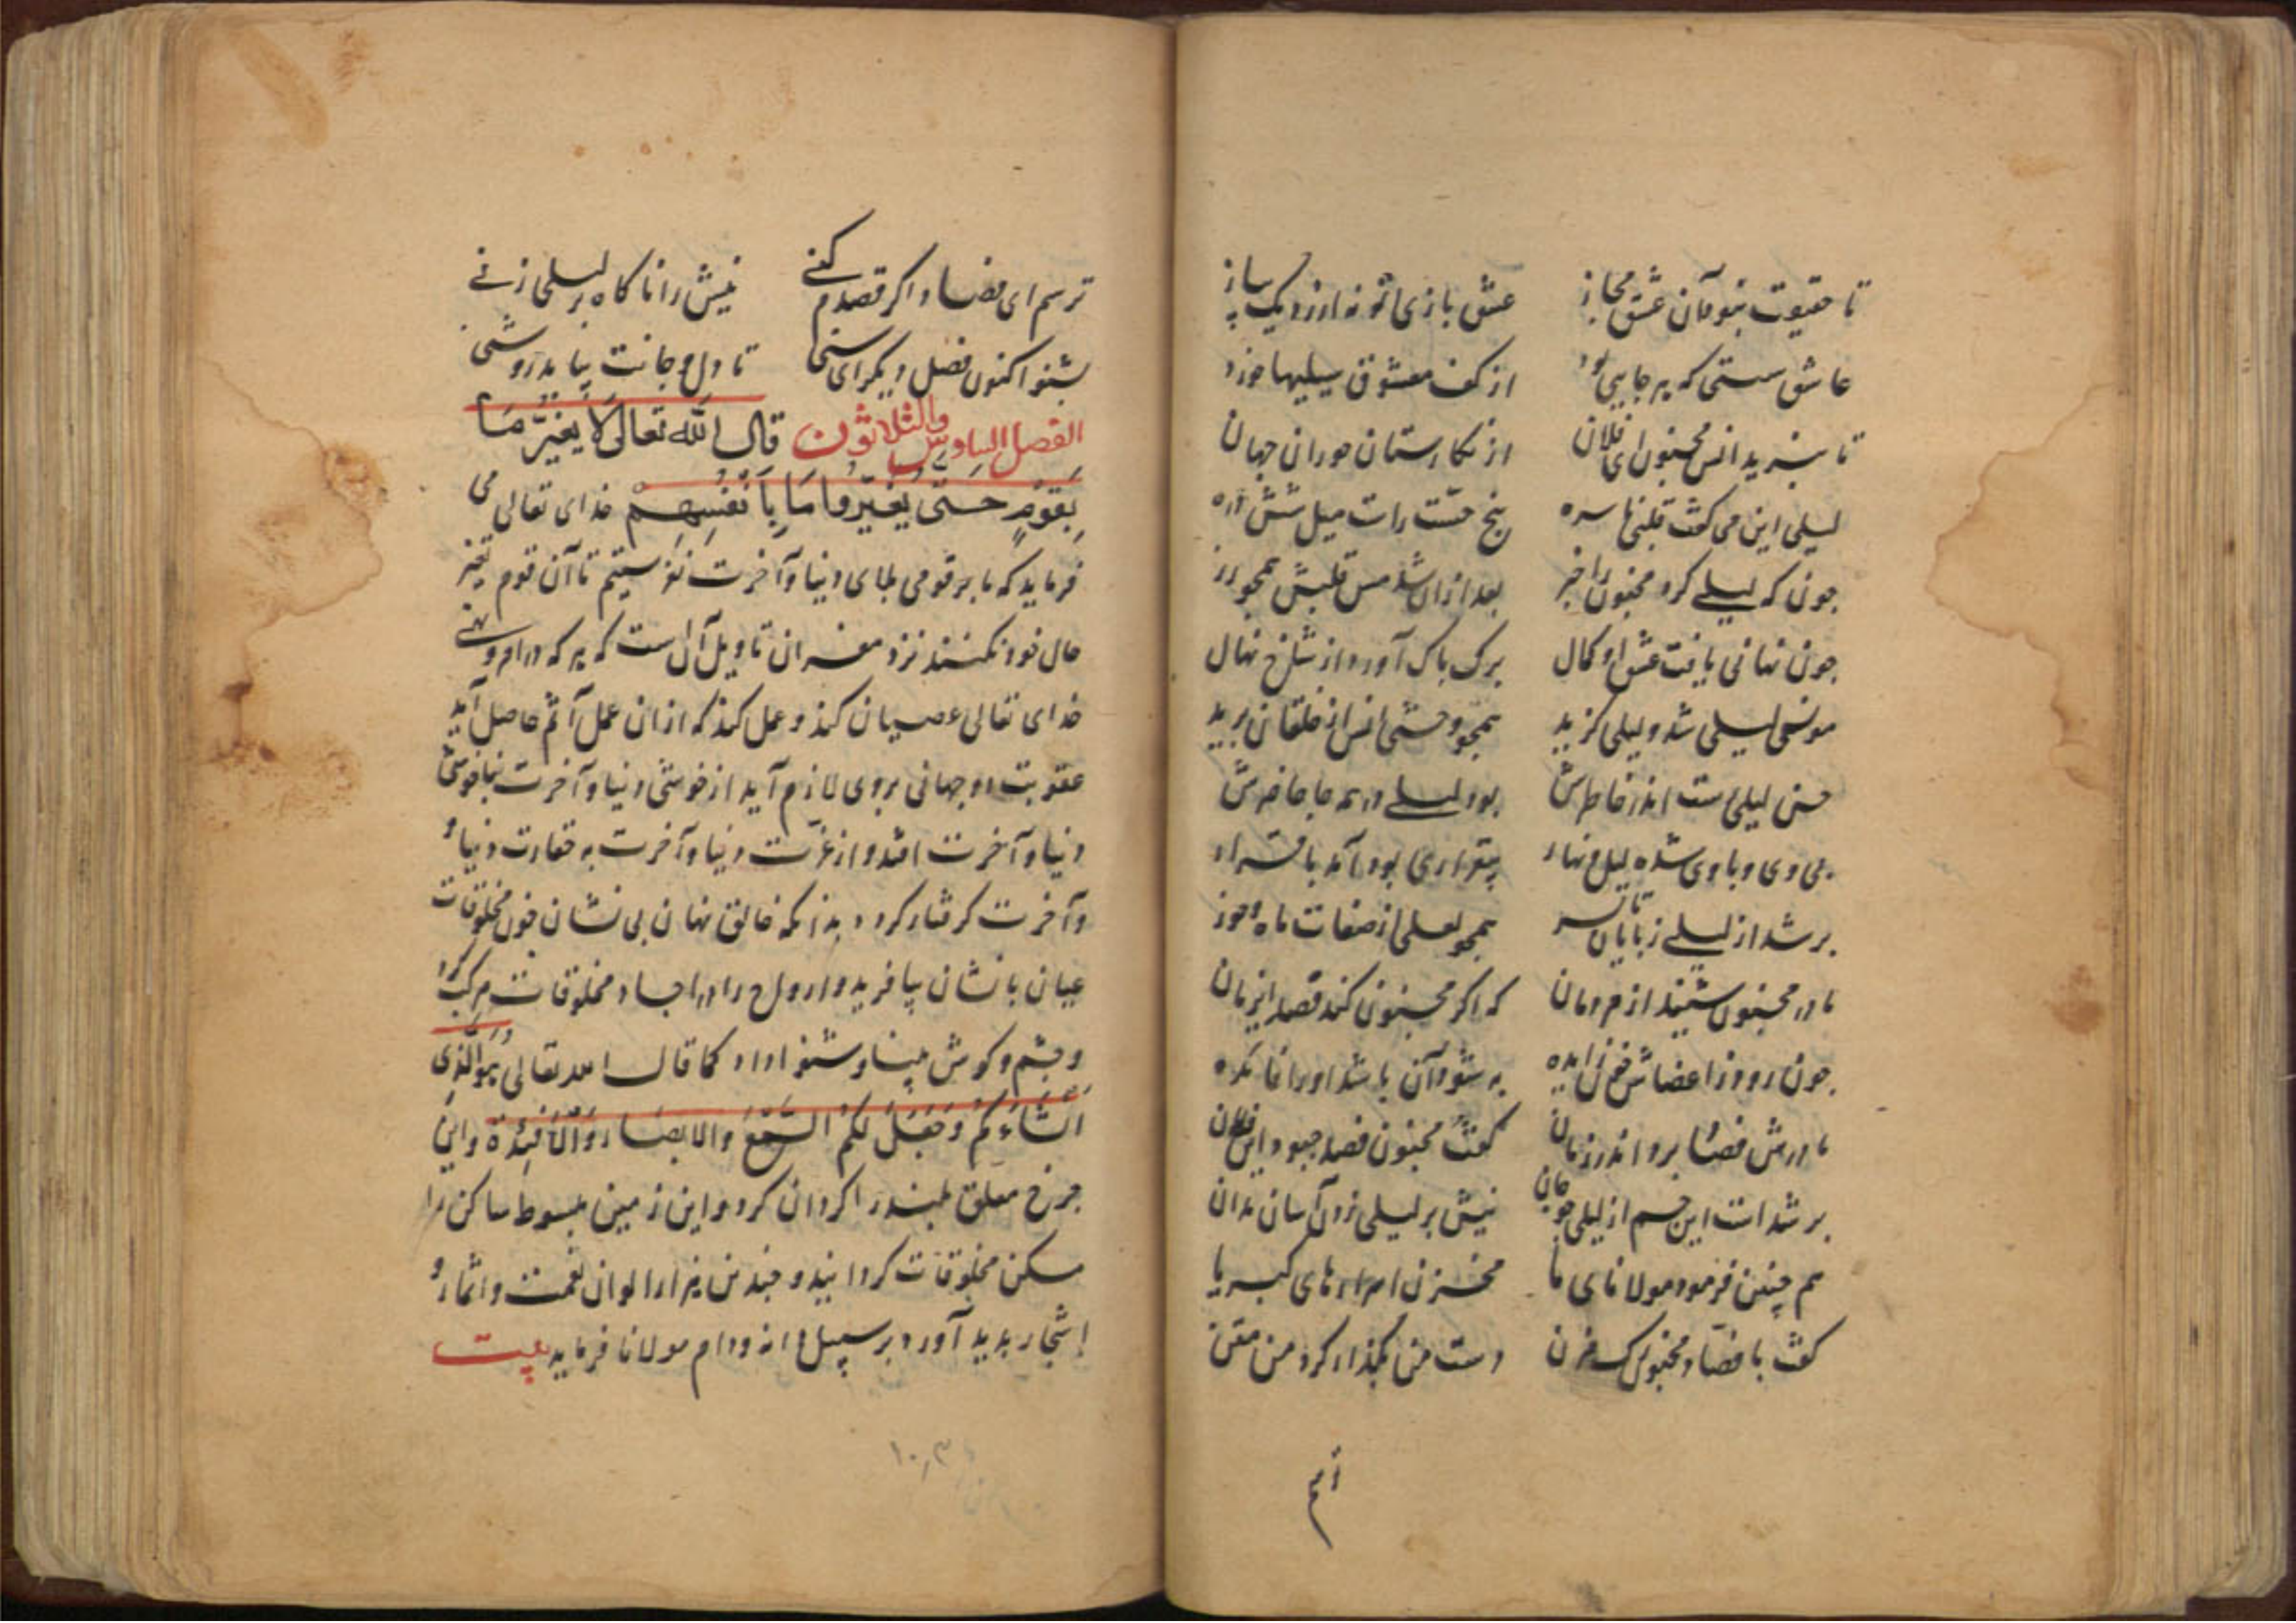 تا حقیقت نبود آن عشق مجاز عشق بازی تو نه ارزد یک پیاز
عاشق سستی که بر جایی بود از کف معشوق سیلیها خورد
تا نبرید انس مجنون ای فلان از نکارستان حوران جهان
لیلی این می کفت قلبی ناسره پنج حست راست میل شش دره
جون که لیلی کرد مجنون را خبر بعد ازان شد مس قلبش همجو زر
جون نهانی یافت عشق او کمال برک پاک آورد از شاخ نهال
مونس لیلی شد و لیلی کزید همجو وحشی انس از خلقان برید
حسن لیلی است اندر خاطرش بود لیلی در همه جا حاضرش
بی وی و با وی شده لیل و نهار بیقراری بود آمد با قرار
پر شد از لیلی ز پا تا سر همجو لعلی از صفات ماه و خور
مادر مجنون شنید از مردمان که اکر مجنون کند فصد این زمان
جون رود از اعضاش خون زایده به شود آن باشد او را فائده
مادرش فصاد برد اندر زمان کفت مجنون فصد جبود ای فلان
پر شد است این جسم از لیلی جو جان نیش بر لیلی زدن آسان مدان
هم چنین فرمود مولانای ما مخزن اسرارهای کبریا
کفت با فصاد مجنون دست من بکذار کرد من متن
ترسم
ترسم ای فصاد اکر فصدم کنی نیش را ناکاه بر لیلی زنی
بشنو اکنون فصل دیکر ای سنی تا دل و جانت بیابد روشنی
الفصل السادس والثلاثون قال الله تعالی لا یغیر ما
بقوم حتی یغیروا ما بانفسهم خدای تعالی می
فرماید که ما بر قومی بلای دنیا و آخرت نفرستیم تا آن قوم تغیر
حال خود نکنند نزد مفسران تاویل آن است که هر که در امر و نهی
خدای تعالی عصیان کند و عمل کند که ازان عمل آثم حاصل آید
عقوبت دو جهانی بروی لازم آید از خوشی دنیا و آخرت بناخوشی
دنیا و آخرت افتد و از عزت دنیا و آخرت به حقارت دنیا و
و آخرت کرفتار کردد بدانکه خالق نهان بی نشان جون مخلوقات
عیان با نشان بیافرید و ارواح را در اجساد مخلوقات مرکب کرد
و جشم و کوش بینا و شنوا داد کما قال الله تعالی هو الذی
انشاءکم وجعل لکم السمع والابصار والافئدة و این
جرخ معلق بلند را کردان کرد و این زمین مبسوط ساکن را
مسکن مخلوقات کردانید و جندین هزار الوان نعمت و اثمار و
اشجار بدید آورد بر سبیل دانه و دام مولانا فرماید بیت